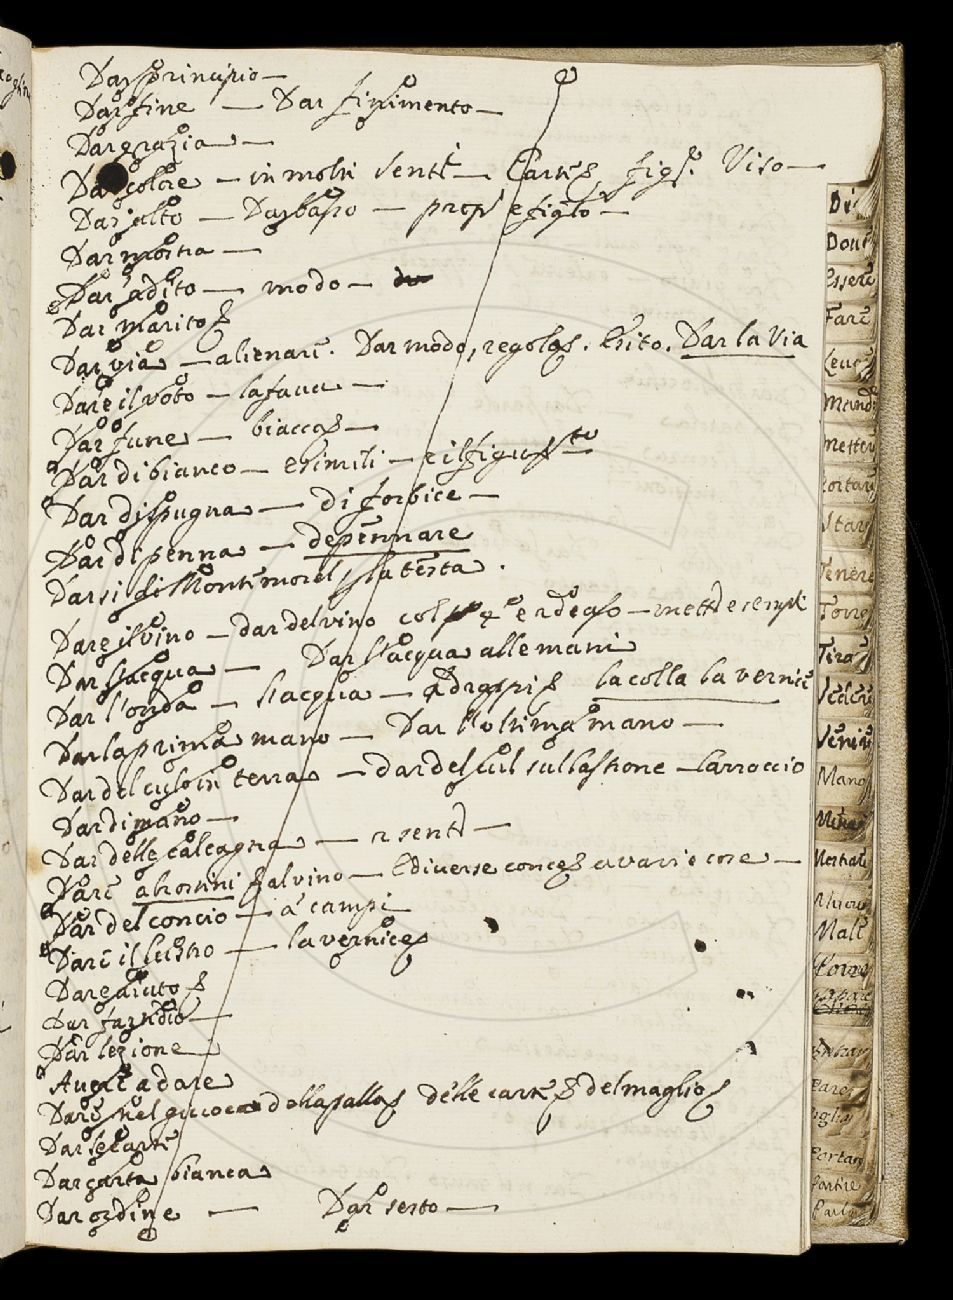 Dar principio —
Dar fine — Dar finimento —
Dar grazia —
Dar colore — in molti senti — Carte, fig. Viso —
Dar alto — Dar basso — prop e figto —
Dar mostra —
Dar adito — modo —
Dar marito
Dar via — alienare. Dar modo, regola. Esito. Dar la via
Dare il voto — la faua —
Dar fune — biacca —
Dar di bianco — e simili — e il figu to
Dar di spugna — di forbice —
Dar di penna — depennare
Darsi di Montimorel, la testa.
Dare il vino — dar del vino col
Dar l'acqua — Dar l'acqua alle mani
Dar l'onda — l'acqua — a drappi la colla la vernice
Dar la prima mano — Dar l'oltima mano —
Dar del culo in terra — dar del cul sul lastrone — Carroccio
Dar di mano —
Dar delle calcagna — 2 senti —
Dare al vino — E diverse a varie cose —
Dar del concio — a campi
Dare il lustro — la vernice
Dare aiuto
Dar fastidio —
Dar lezione
Avere a dare
Dare nel giuoco della palla delle carte del maglio
Dar le carte
Dar carta bianca
Dar ordine — Dar sesto —
Di
Dour
Essere
Fare
Leuc
Mand
Metter
Portar
Star
Tenere
Torre
Tira
Vedere
Venir
Mang
Menar
Mostrar
Male
Entrar
Pare
Portar
Partire
Parla